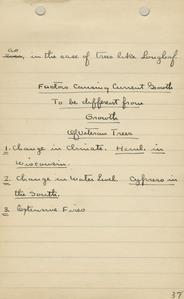 as
even, in the case of trees like Longleaf
Factors Causing Current Growth
To be different from
Growth
of Veteran Trees
1. Change in Climate. Heml. in
Wisconsin.
2. Change in Water Level. Cypress in
the South.
3. Extensive Fires
37